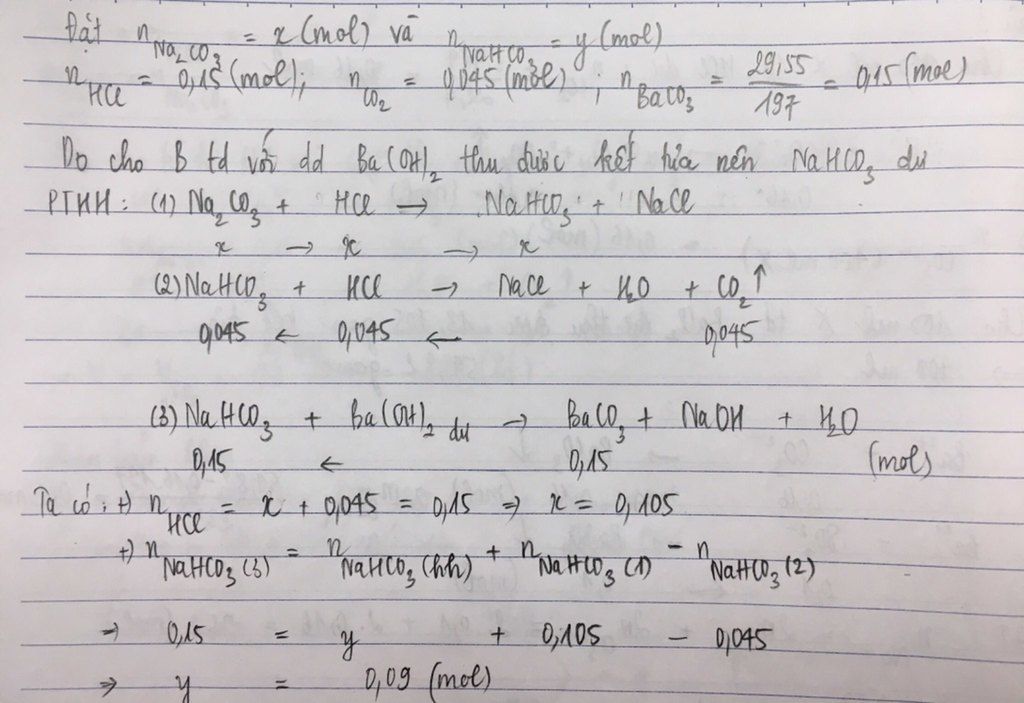 Đặt n_{Na₂CO₃} = x (mol) và n_{NaHCO₃} = y (mol)
n_{HCl} = 0,15 (mol); n_{CO₂} = 0,045 (mol); n_{BaCO₃} = \frac{29,55}{197} = 0,15 (mol)
Do cho B td với dd Ba(OH)₂ thu được kết tủa nên NaHCO₃ dư
PTHH: (1) Na₂CO₃ + HCl → NaHCO₃ + NaCl
x → x → x
(2) NaHCO₃ + HCl → NaCl + H₂O + CO₂↑
0,045 ← 0,045 ← 0,045
(3) NaHCO₃ + Ba(OH)₂ dư → BaCO₃ + NaOH + H₂O
0,15 ← 0,15 (mol)
Ta có: +) n_{HCl} = x + 0,045 = 0,15 ⇒ x = 0,105
+) n_{NaHCO₃ (3)} = n_{NaHCO₃ (hh)} + n_{NaHCO₃ (1)} - n_{NaHCO₃ (2)}
⇒ 0,15 = y + 0,105 - 0,045
⇒ y = 0,09 (mol)